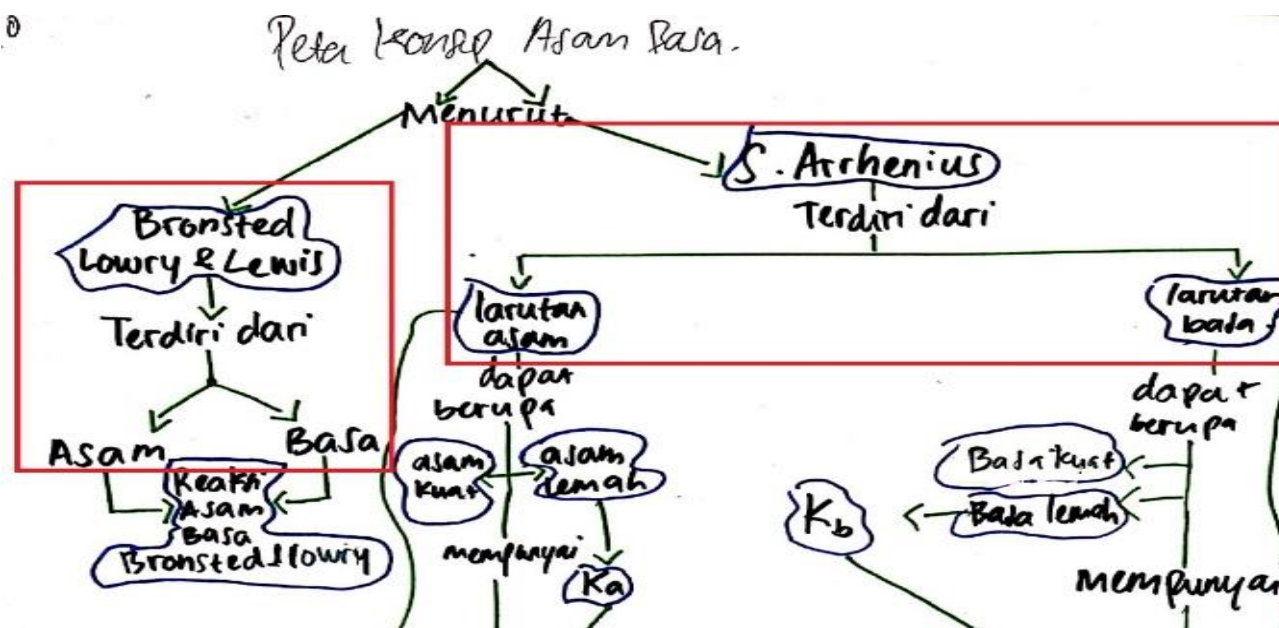 Peta Konsep Asam Basa.
Menurut
S. Arrhenius
Terdiri dari
Bronsted
Lowry & Lewis
Terdiri dari
Asam
Basa
Reaksi
Asam
Basa
Bronsted Lowry
larutan
asam
dapat
berupa
asam
kuat
asam
lemah
mempunyai
Ka
larutan
basa
dapat
berupa
Basa kuat
Basa lemah
Kb
mempunyai